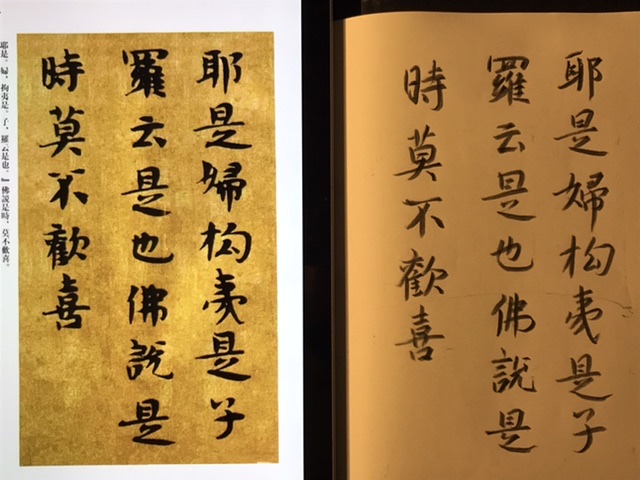 耶是婦拘夷是子
羅云是也佛說是
時莫不歡喜
耶是。婦,拘夷是。子,羅云是也。』佛說是時,莫不歡喜。
耶是婦拘夷是子
羅云是也佛說是
時莫不歡喜